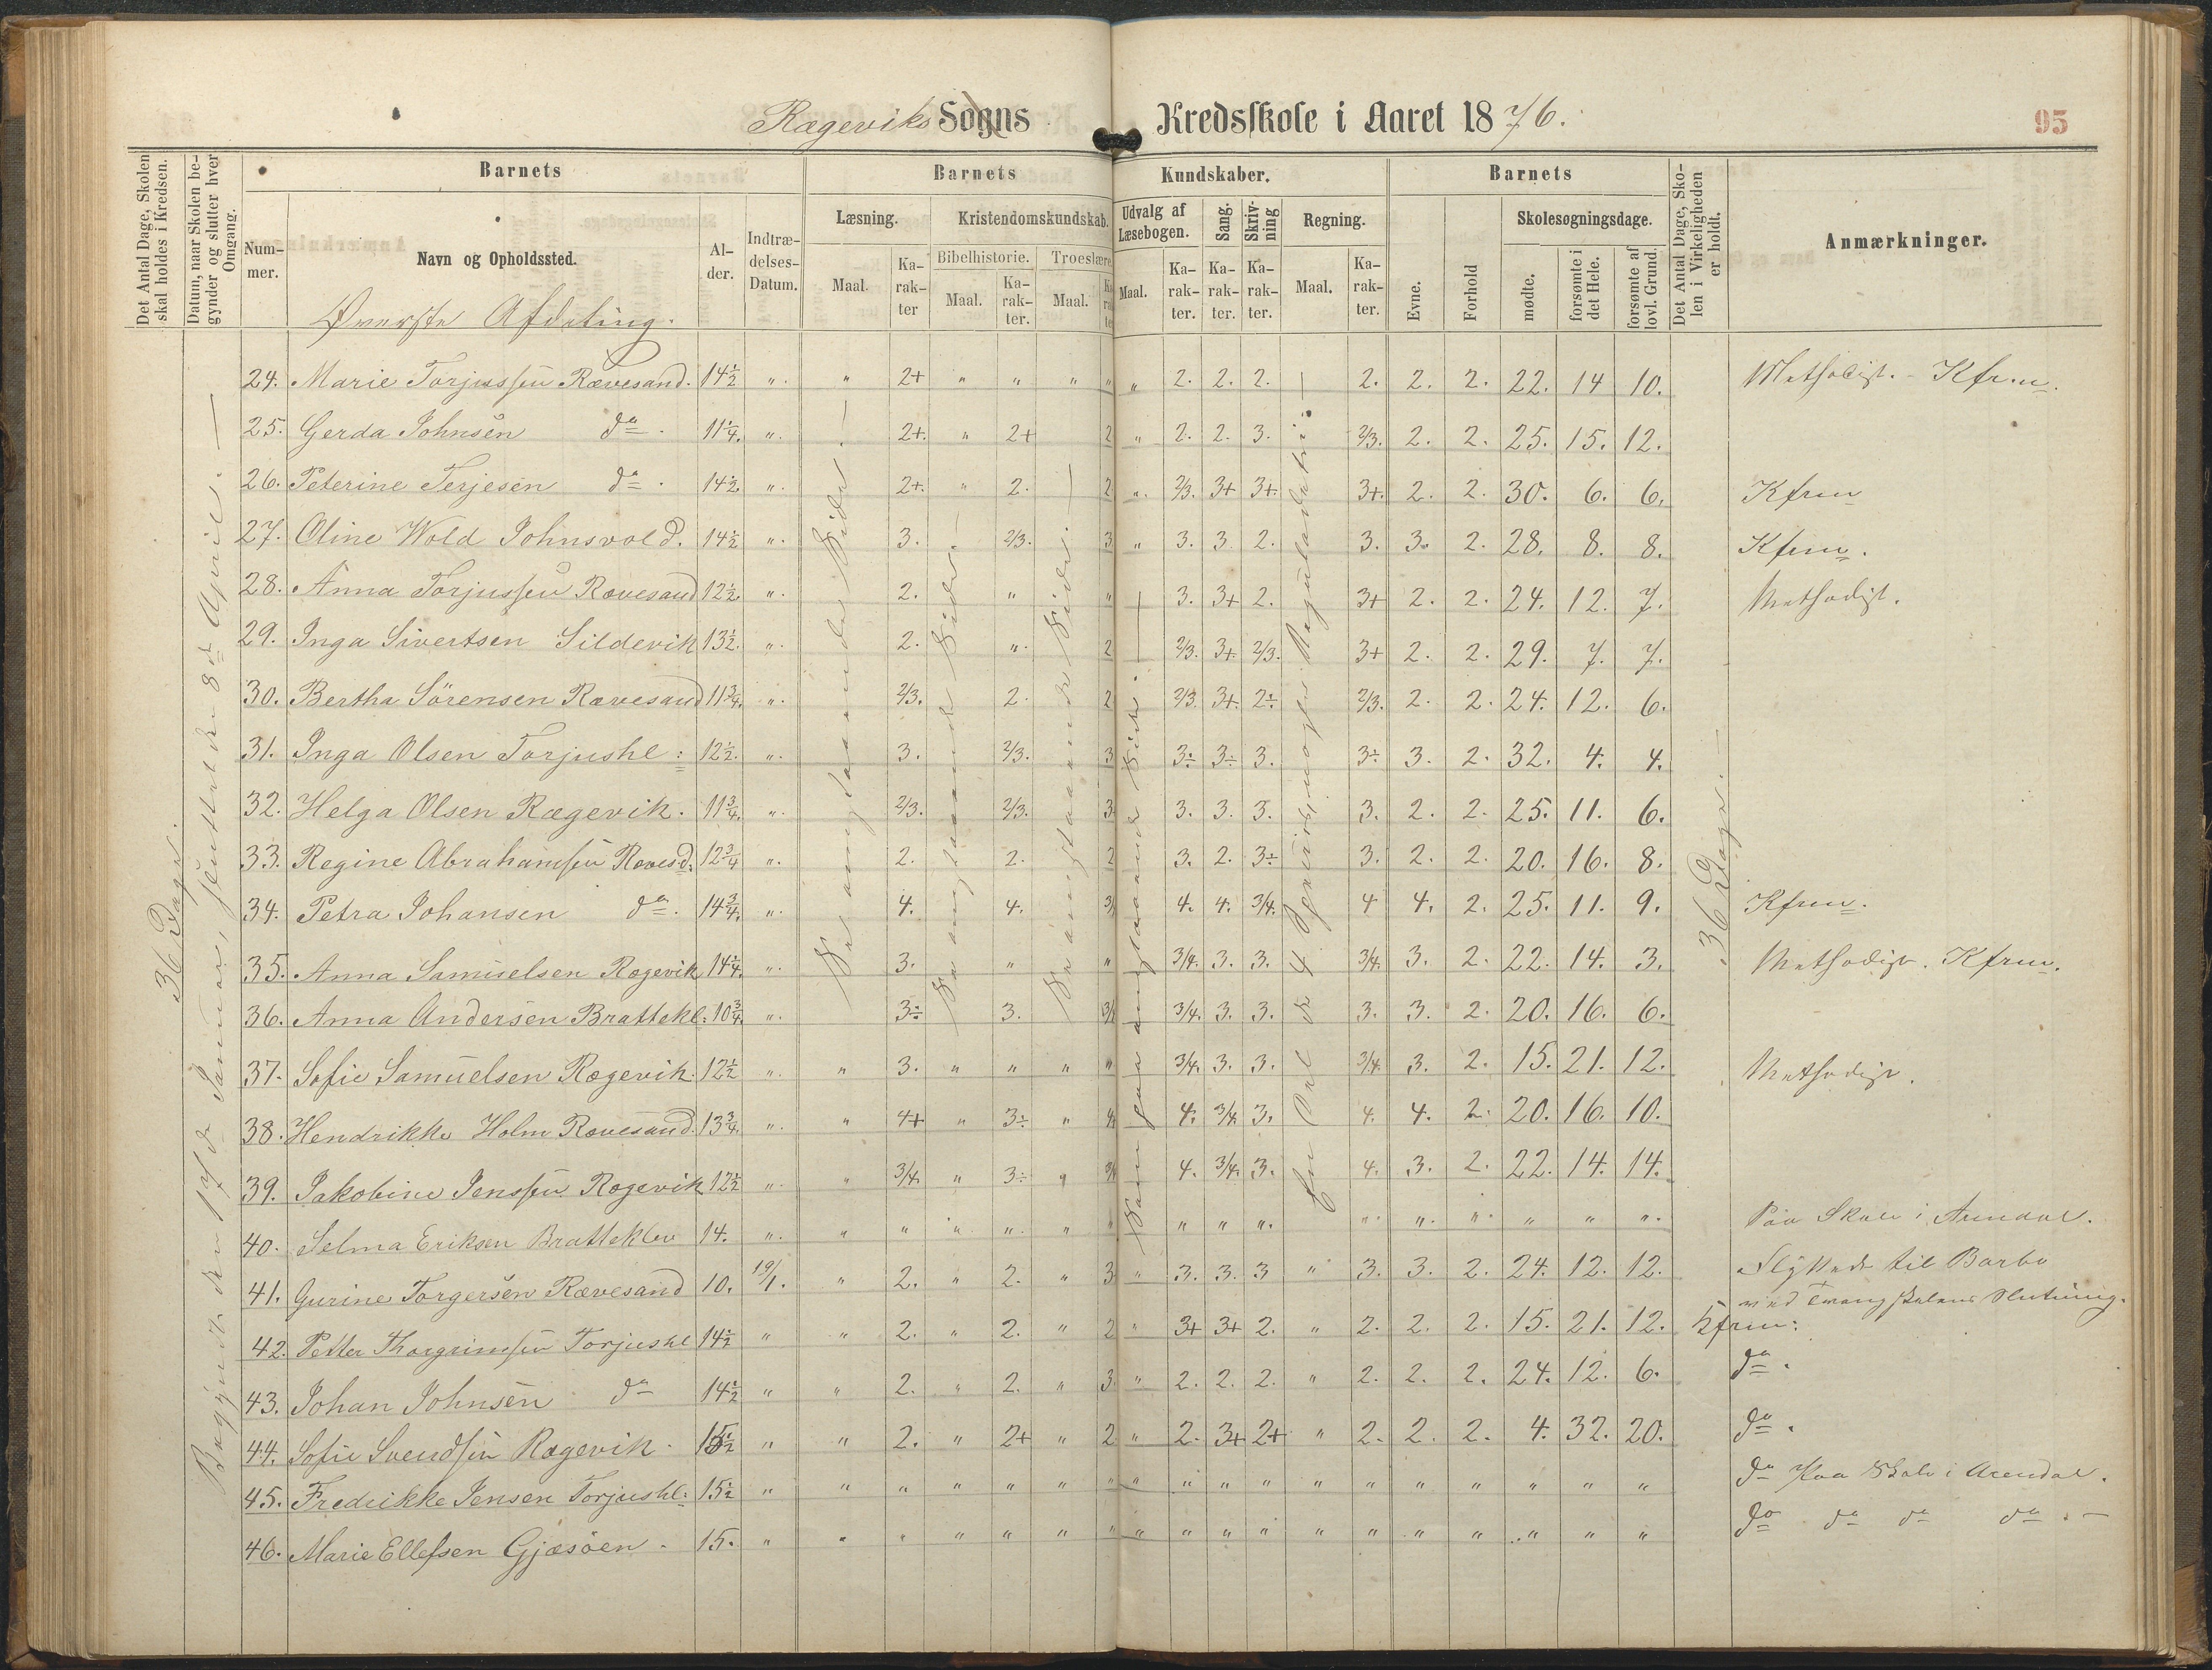 Rægeviks Sogns Kredsskole i Aaret 1876.
95
Det Antal Dage, Skolen skal holdes i Kredsen.
Datum, naar Skolen begynder og slutter hver Omgang.
Barnets
Nummer.
Navn og Opholdssted.
Alder.
Indtrædelses-Datum.
Barnets Kundskaber.
Læsning.
Maal.
Karakter
Kristendomskundskab.
Bibelhistorie.
Maal.
Karakter.
Troeslære
Maal.
Udvalg af Læsebogen.
Maal.
Karakter.
Sang.
Karakter.
Skrivning
Karakter.
Regning.
Maal.
Karakter.
Barnets
Evne.
Forhold
Skolesøgningsdage.
mødte.
forsømte i det Hele.
forsømte af lovl. Grund.
Det Antal Dage, Skolen i Virkeligheden er holdt.
Anmærkninger.
Øverste Afdeling.
36 Dage.
Begyndte den 17de Januar, sluttede 8de April. —
Se omstaaende Side. —
Se omstaaende Side. —
Se omstaaende Side. —
Som paa omstaaende Side. —
36 Dage. —
24. Marie Torjussen Rævesand. 14½ " " 2+ " " " " " 2. 2. 2. 2. 2. 2. 22. 14 10. Methodist. - Kfrm.
25. Gerda Johnsen do. 11¼. " 2+. " 2+ 2 " 2. 2. 3. 2/3. 2. 2. 25. 15. 12.
26. Peterine Terjesen do. 14½ " 2+. " 2. 2 " 2/3. 3+ 3+. 3+. 2. 2. 30. 6. 6. Kfrm
27. Oline Wold Johnsvold. 14½ " 3. 2/3. 3 " 3. 3. 2. 3. 3. 2. 28. 8. 8. Kfrm.
28. Anna Torjussen Rævesand 12½. " 2. " " 3. 3+ 2. 3+ 2. 2. 24. 12. 7. Methodist.
29. Inga Sivertsen Sildevik 13½. " 2. " 2 2/3. 3+. 2/3. 3+ 2. 2. 29. 7. 7.
30. Bertha Sörensen Rævesand 11¾. " 2/3. 2. 2 2/3. 3+. 2÷ 2/3. 2. 2. 24. 12. 6.
31. Inga Olsen Torjushl: 12½. " 3. 2/3. 3 3÷ 3÷ 3. 3÷ 3. 2. 32. 4. 4.
32. Helga Olsen Rægevik. 11¾. " 2/3. 2/3. 3. 3. 3. 3. 3. 2. 2. 25. 11. 6.
33. Regine Abrahamsen Rævesd. 12¾ " 2. 2. 2 3. 2. 3÷ 3. 2. 2. 20. 16. 8.
34. Petra Johansen do. 14¾. " 4. 4. 4. 4. 3/4. 4 4. 2. 25. 11. 9. Kfrm.
35. Anna Samuelsen Rægevik 14¼. " 3. " " 3/4. 3. 3. 3/4. 3. 2. 22. 14. 3. Methodist. Kfrm.
36. Anna Andersen Brattekl: 10¾. " 3÷ 3. 3/4. 3. 3. 3. 3. 2. 20. 16. 6.
37. Sofie Samuelsen Rægevik. 12½ " " 3. " " " " 3/4. 3. 3. 3/4. 3. 2. 15. 21. 12. Methodist.
38. Hendrikke Holm Rævesand. 13¾. " " 4+ " 3÷ " 4. 3/4. 3. 4. 4. 2. 20. 16. 10.
39. Jakobine Jenssen Rægevik 12½ " " 3/4. " 3÷ " 4. 3/4. 3. 4. 3. 2. 22. 14. 14.
40. Selma Eriksen Bratteklev 14. " " " " " " " " " " " " " " " " Paa Skole i Arendal.
41. Gurine Torgersen Rævesand 10. 19/1. " 2. " 2. " 3 " 3. 3. 3 " 3. 3. 2. 24. 12. 12. Flyttede til Barbo
ved Omgangsskolens Slutning.
42. Petter Thorgrimsen Torjushl 14½ " " 2. " 2. " 2 " 3+ 3+ 2. " 2. 2. 2. 15. 21. 12. Kfrm:
43. Johan Johnsen do 14½ " " 2. " 2. " 3. " 2. 2. 2. " 2. 2. 2. 24. 12. 6. do.
44. Sofie Svendsen Rægevik. 15½ " " 2. " 2+ " 2 " 2. 3+ 2+ " 2. 2. 2. 4. 32. 20. do.
45. Fredrikke Jensen Torjushl: 15½ " " " " " " " " " " " " " " " " " " do Paa Skole i Arendal.
46. Marie Ellefsen Gjæsöen. 15. " " " " " " " " " " " " " " " " " " do do do do. —